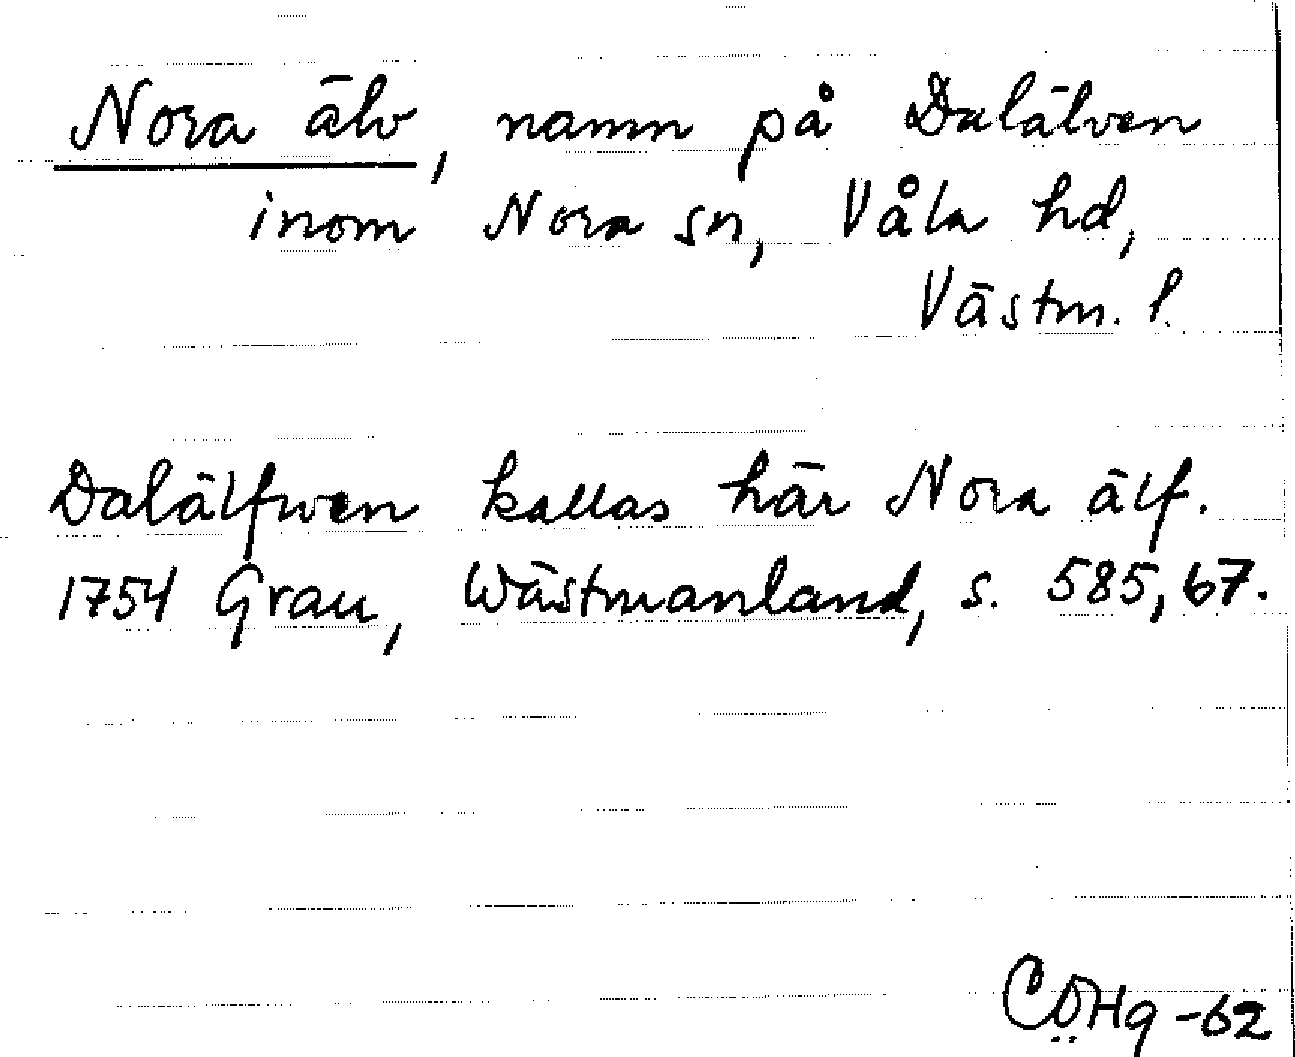 Nora älv, namn på Dalälven
inom Nora sn, Våla hd,
Västm. l.
Dalälfwen kallas här Nora älf.
1754 Grau, Wästmanland, s. 585, 67.
CÖHg -62